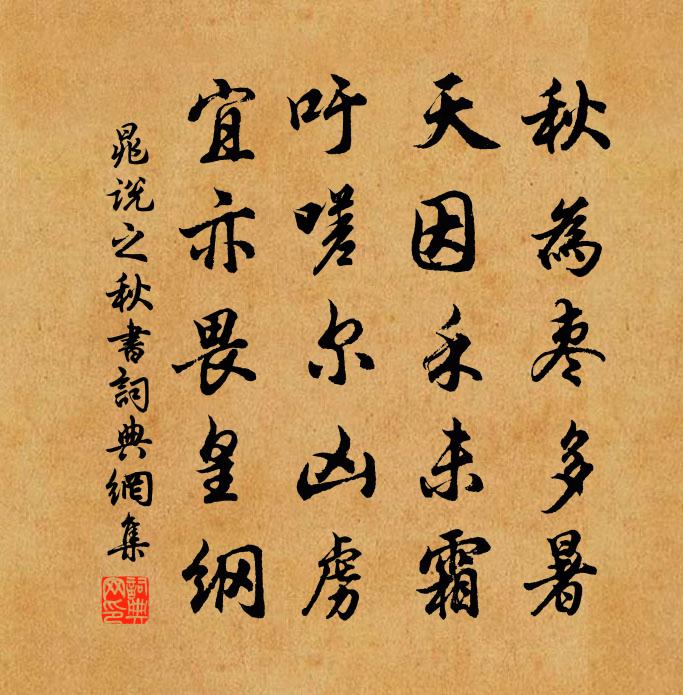 秋為枣多暑
天因禾未霜
吁嗟尔凶虏
宜亦畏皇纲
晁说之秋書詞典網集
詞典网印